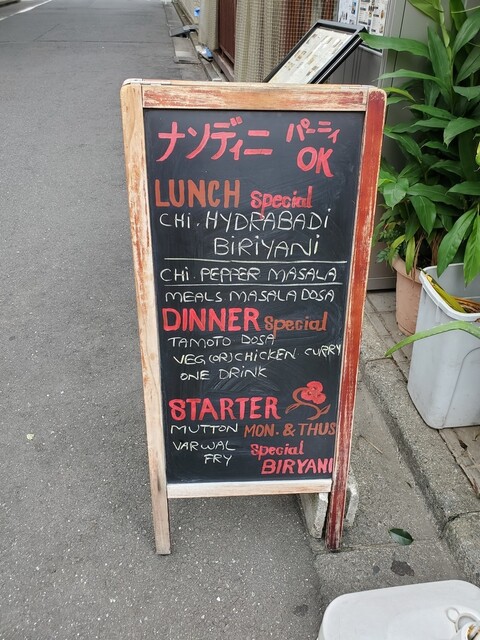 ナンディニ パーティ
OK
LUNCH Special
CHI. HYDRABADI
BIRIYANI
CHI. PEPPER MASALA
MEALS MASALA DOSA
DINNER Special
TAMOTO DOSA
VEG(OR)CHICKEN CURRY
ONE DRINK
STARTER
MUTTON MON. & THUS
VARWAL Special
FRY BIRYANI